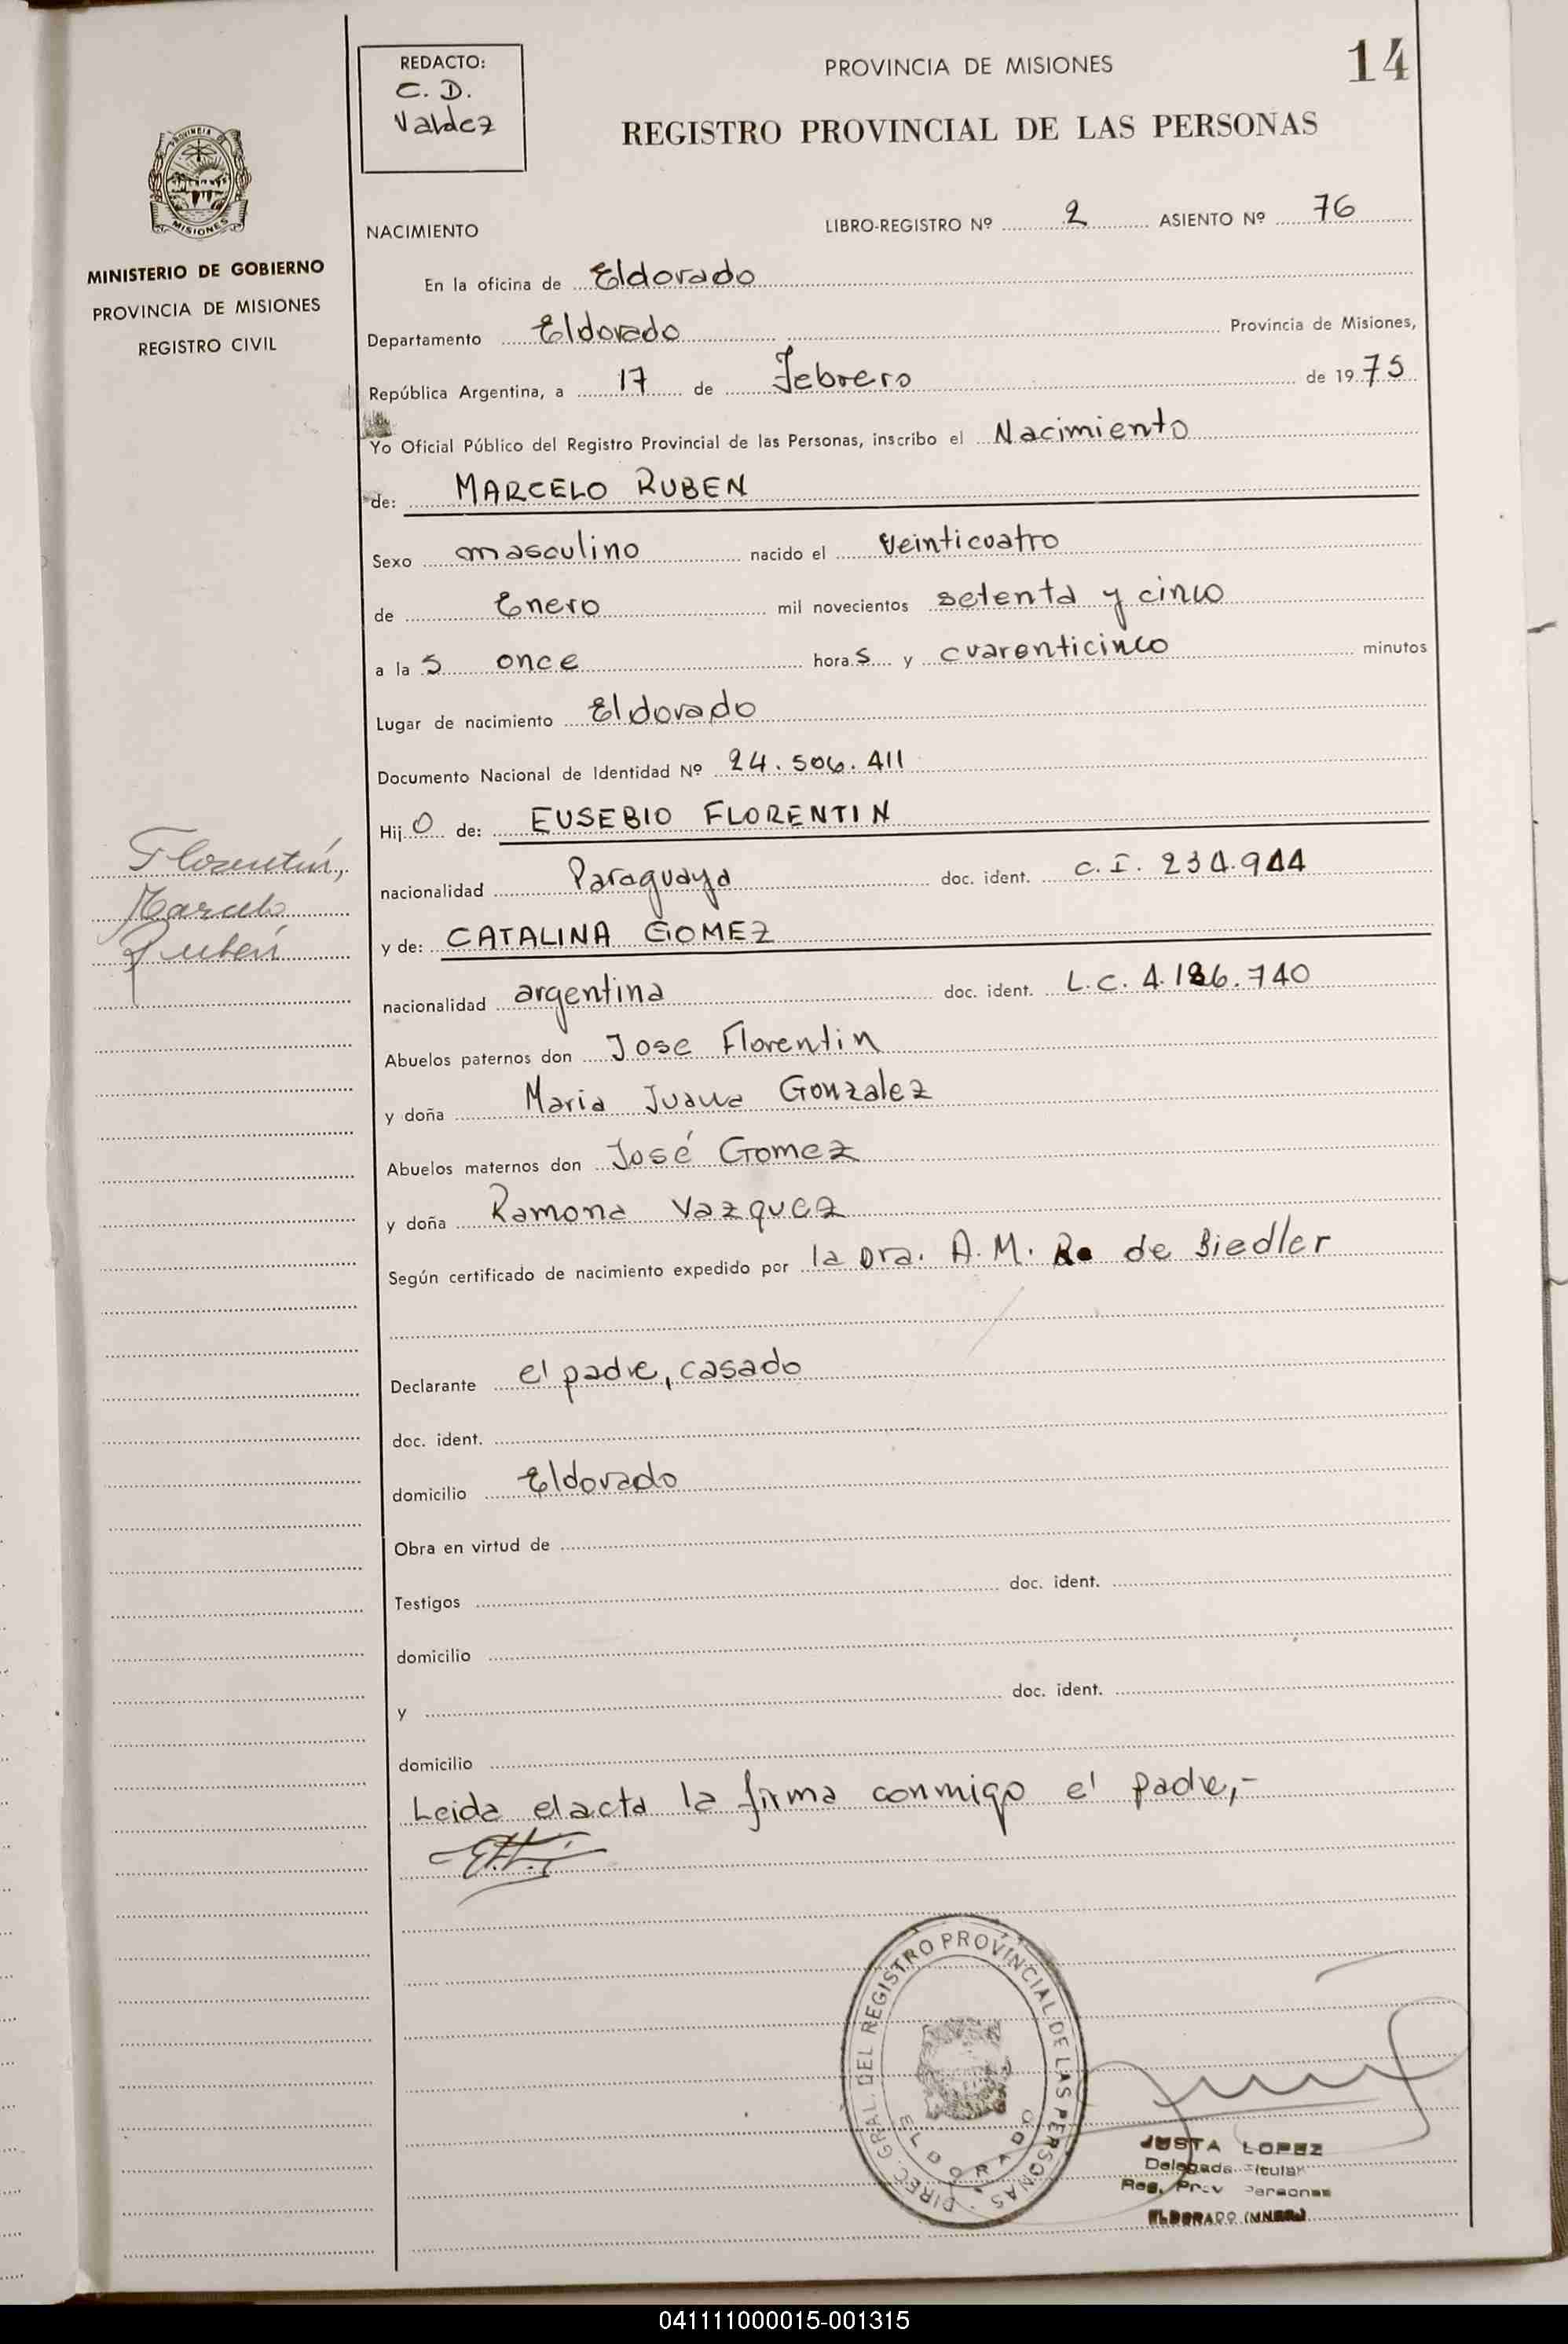 REDACTO:
C. D.
Valdez
PROVINCIA DE MISIONES
14
REGISTRO PROVINCIAL DE LAS PERSONAS
PROVINCIA DE
MISIONES
MINISTERIO DE GOBIERNO
PROVINCIA DE MISIONES
REGISTRO CIVIL
NACIMIENTO LIBRO-REGISTRO Nº 2 ASIENTO Nº 76
En la oficina de Eldorado
Departamento Eldorado Provincia de Misiones,
República Argentina, a 17 de Febrero de 1975
Yo Oficial Público del Registro Provincial de las Personas, inscribo el Nacimiento
de: MARCELO RUBEN
Sexo masculino nacido el veinticuatro
de Enero mil novecientos setenta y cinco
a las once horas y cuarenticinco minutos
Lugar de nacimiento Eldorado
Documento Nacional de Identidad Nº 24.506.411
Hijo de: EUSEBIO FLORENTIN
Florentín,
Marcelo
Rubén
nacionalidad Paraguaya doc. ident. C.I. 234.944
y de: CATALINA GOMEZ
nacionalidad argentina doc. ident. L.C. 4.186.740
Abuelos paternos don Jose Florentin
y doña Maria Juana Gonzalez
Abuelos maternos don José Gomez
y doña Ramona Vazquez
Según certificado de nacimiento expedido por la Dra. A.M. R. de Biedler
Declarante el padre, casado
doc. ident.
domicilio Eldorado
Obra en virtud de
Testigos doc. ident.
domicilio
y doc. ident.
domicilio
Leida el acta la firma conmigo el padre,-
DIREC. GRAL. DEL REGISTRO PROVINCIAL DE LAS PERSONAS
ELDORADO
JUSTA LOPEZ
Delegada Titular
Reg. Prov Personas
ELDORADO (MNES.)
041111000015-001315